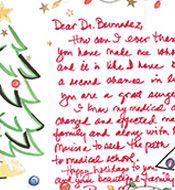 Dear Dr. Bermudez,
How can I ever thank
you have made me whole
and it is like I have b
a second chance in li
you are a great surge
I know my medical
changed and affected ma
family and along with
Marine to seek the path
to medical school.
Happy holidays to you
and your beautiful family